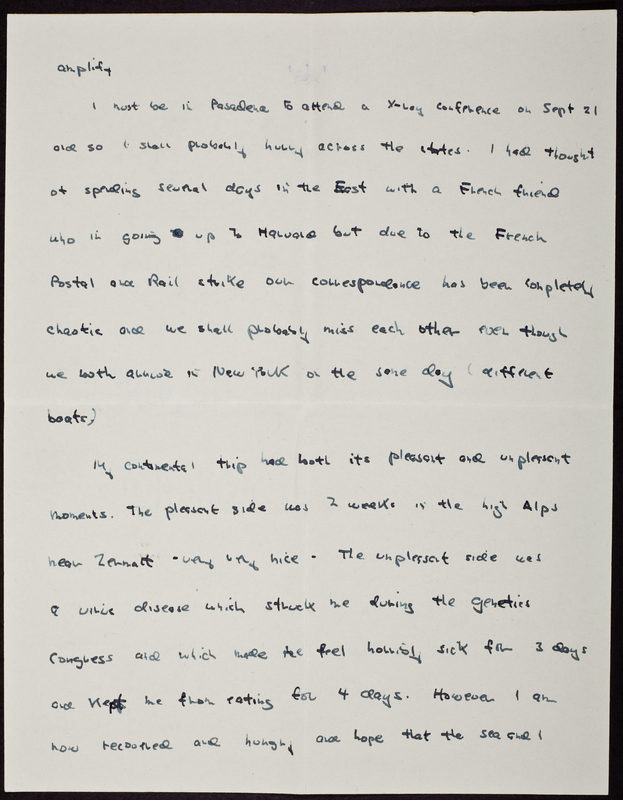 amplify
I must be in Pasadena to attend a X-ray conference on Sept 21
and so I shall probably hurry across the states. I had thought
of spending several days in the East with a French friend
who is going up to Harvard but due to the French
Postal and Rail strike our correspondence has been completely
chaotic and we shall probably miss each other even though
we both arrive in New York on the same day (different
boats)
My continental trip had both its pleasant and unpleasant
moments. The pleasant side was 2 weeks in the high Alps
near Zermatt - very very nice - The unpleasant side was
a virus disease which struck me during the genetics
Congress and which made me feel horribly sick for 3 days
and kept me from eating for 4 days. However I am
now recovered and hungry and hope that the sea and I